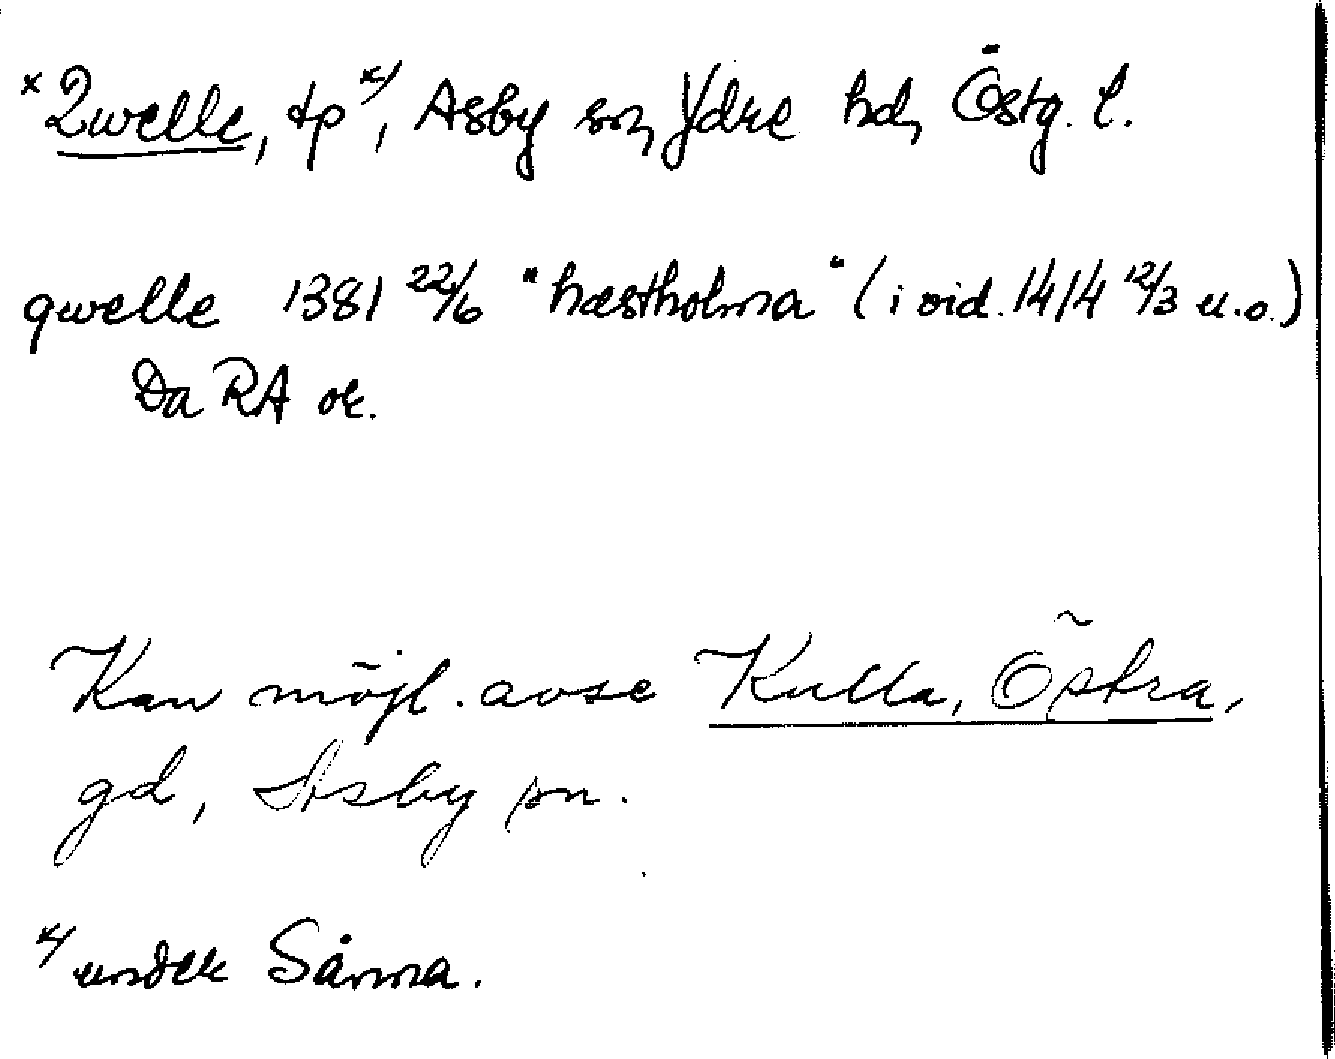 x Qwelle, tp x/, Asby sn, Ydre hd, Östg. l.
qwelle 1381 22/6 "hæstholma" (i vid. 1414 12/3 u.o.)
Da RA or.
Kan möjl. avse Kulla, Östra,
gd, Asby sn.
x/ under Sånna.